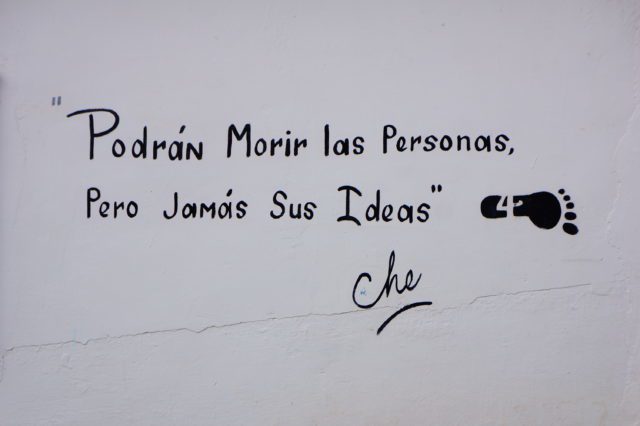 "Podrán Morir las Personas,
Pero Jamás Sus Ideas" 42
Che